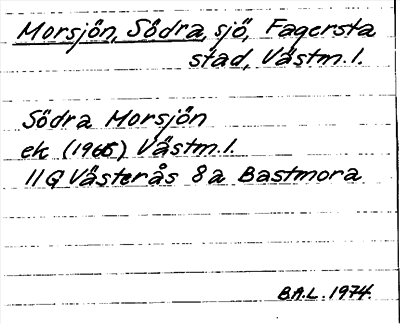 Morsjön, Södra, sjö, Fagersta
stad, Västm.l.
Södra Morsjön
ek (1965) Västm.l.
11G Västerås 8a Bastmora
B.A.L. 1974.